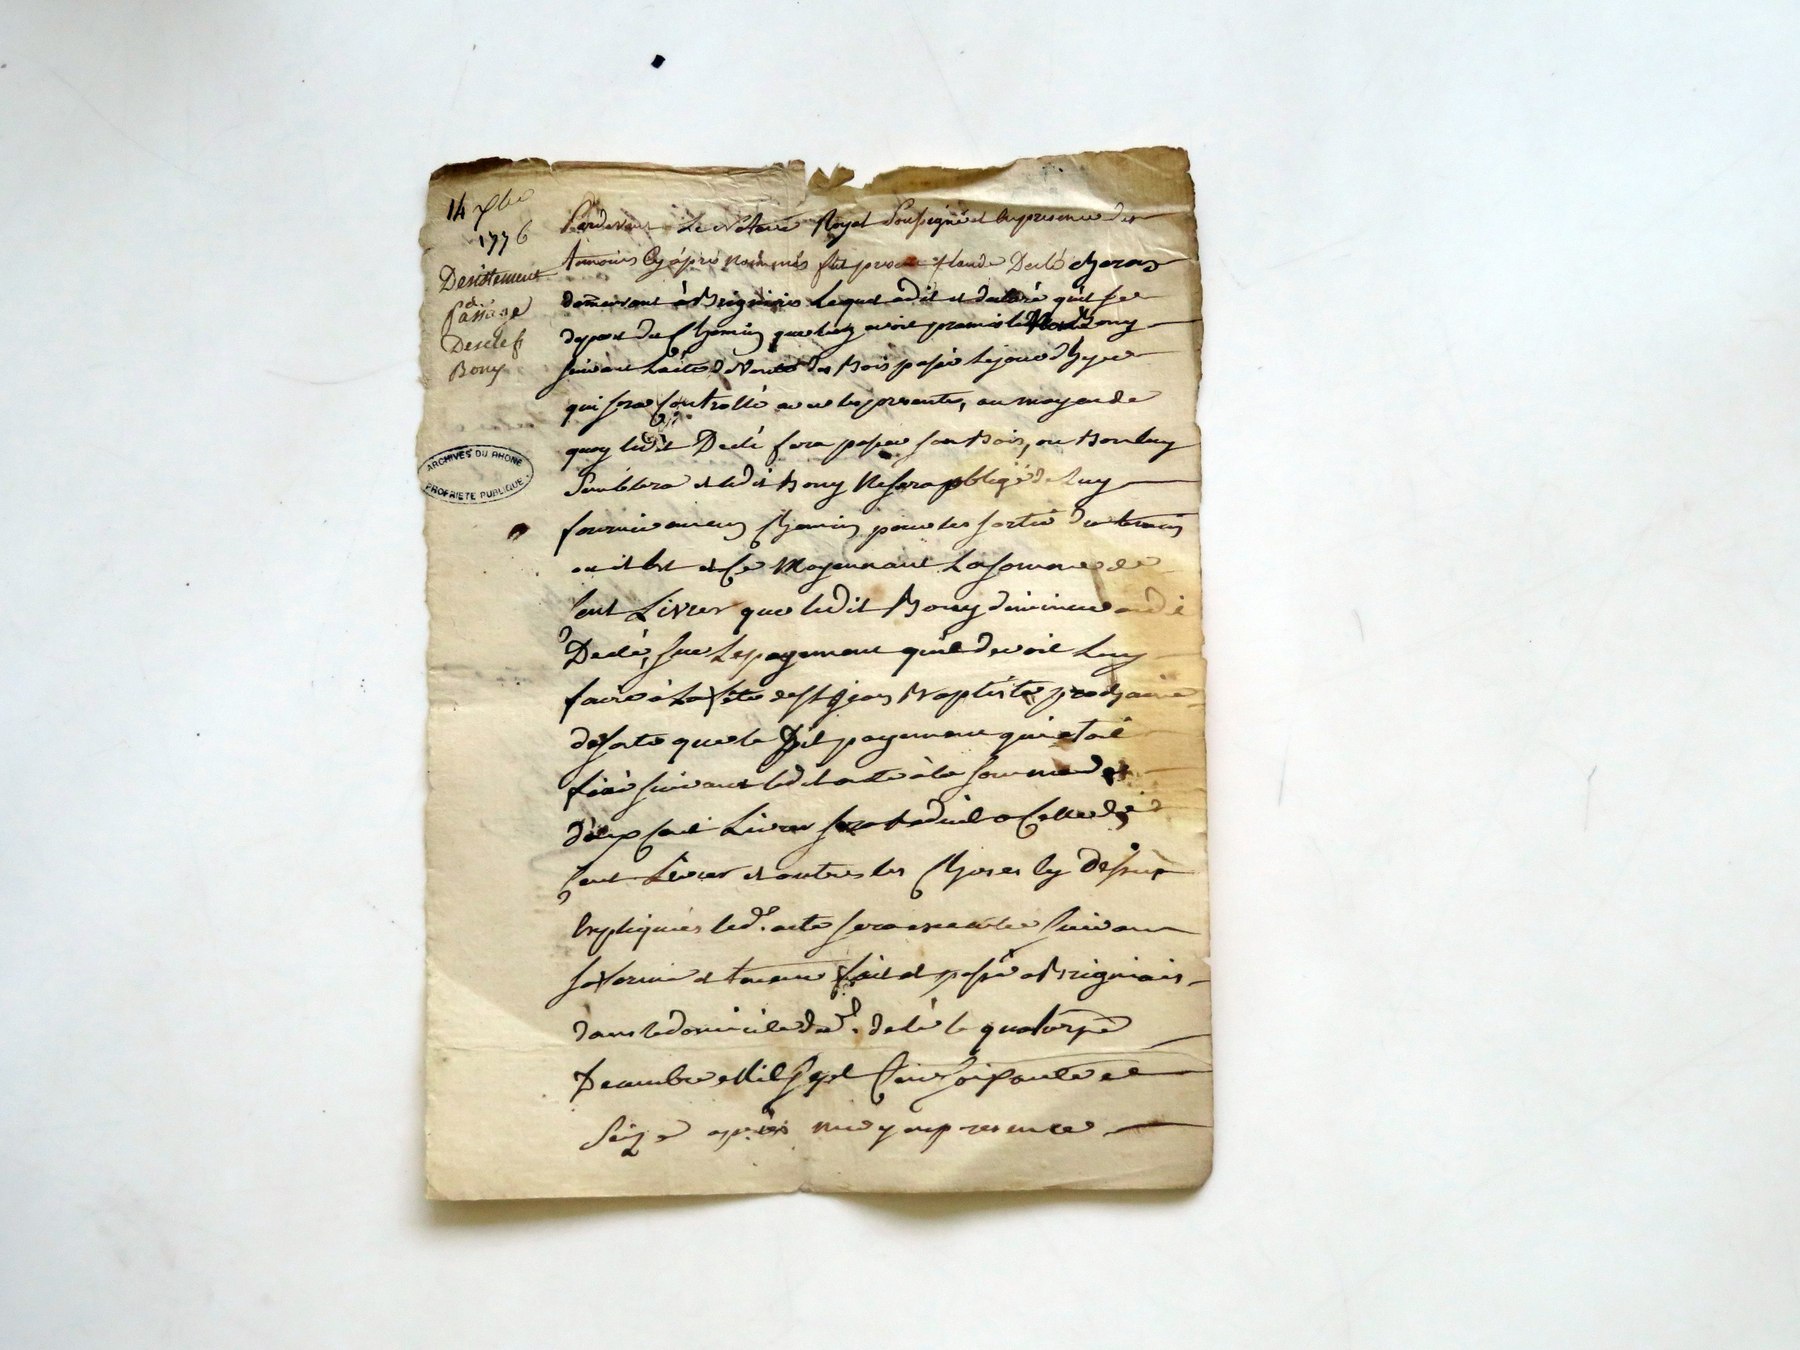 14 xbre
1776
Desistement
de
Passage
Declé f
Bony
ARCHIVES DU RHONE
PROPRIETE PUBLIQUE
Pardevant Le Notaire Royal Soussigné et en presence des
temoins Cy après nommés fut present Claude Declé
demeurant à Brignais Lequel a dit et declaré qu'il se
depart du Chemin que luy avoit promis le Bony
suivant l'acte de Vente de Bois passé le jour d'hyer
qui sera Controllé avec les presentes, au moyen de
quoy ledit Declé fera passer son Bois, ou Bon luy
Semblera et ledit Bony Ne sera obligé de Luy
fournir aucun Chemin pour les sortir du
ou il est et Ce Moyennant La somme de
Cent Livres que ledit Bony diminue audit
Declé, sur Le payement qu'il devoit Luy
faire à La fete de St Jean Baptiste prochaine
de sorte que le dit payement qui etoit
fixé suivant ledit acte à la somme de
Cent Livres sera reduit a Celle de
Cent Livres et outre les Choses Cy dessus
Expliquées led. acte sera executé Suivant
sa forme et teneur fait et passé a Brignais
dans le domicile dud. declé le quatorze
Decembre Mil Sept Cent Soixante et
Seize après midy en presence